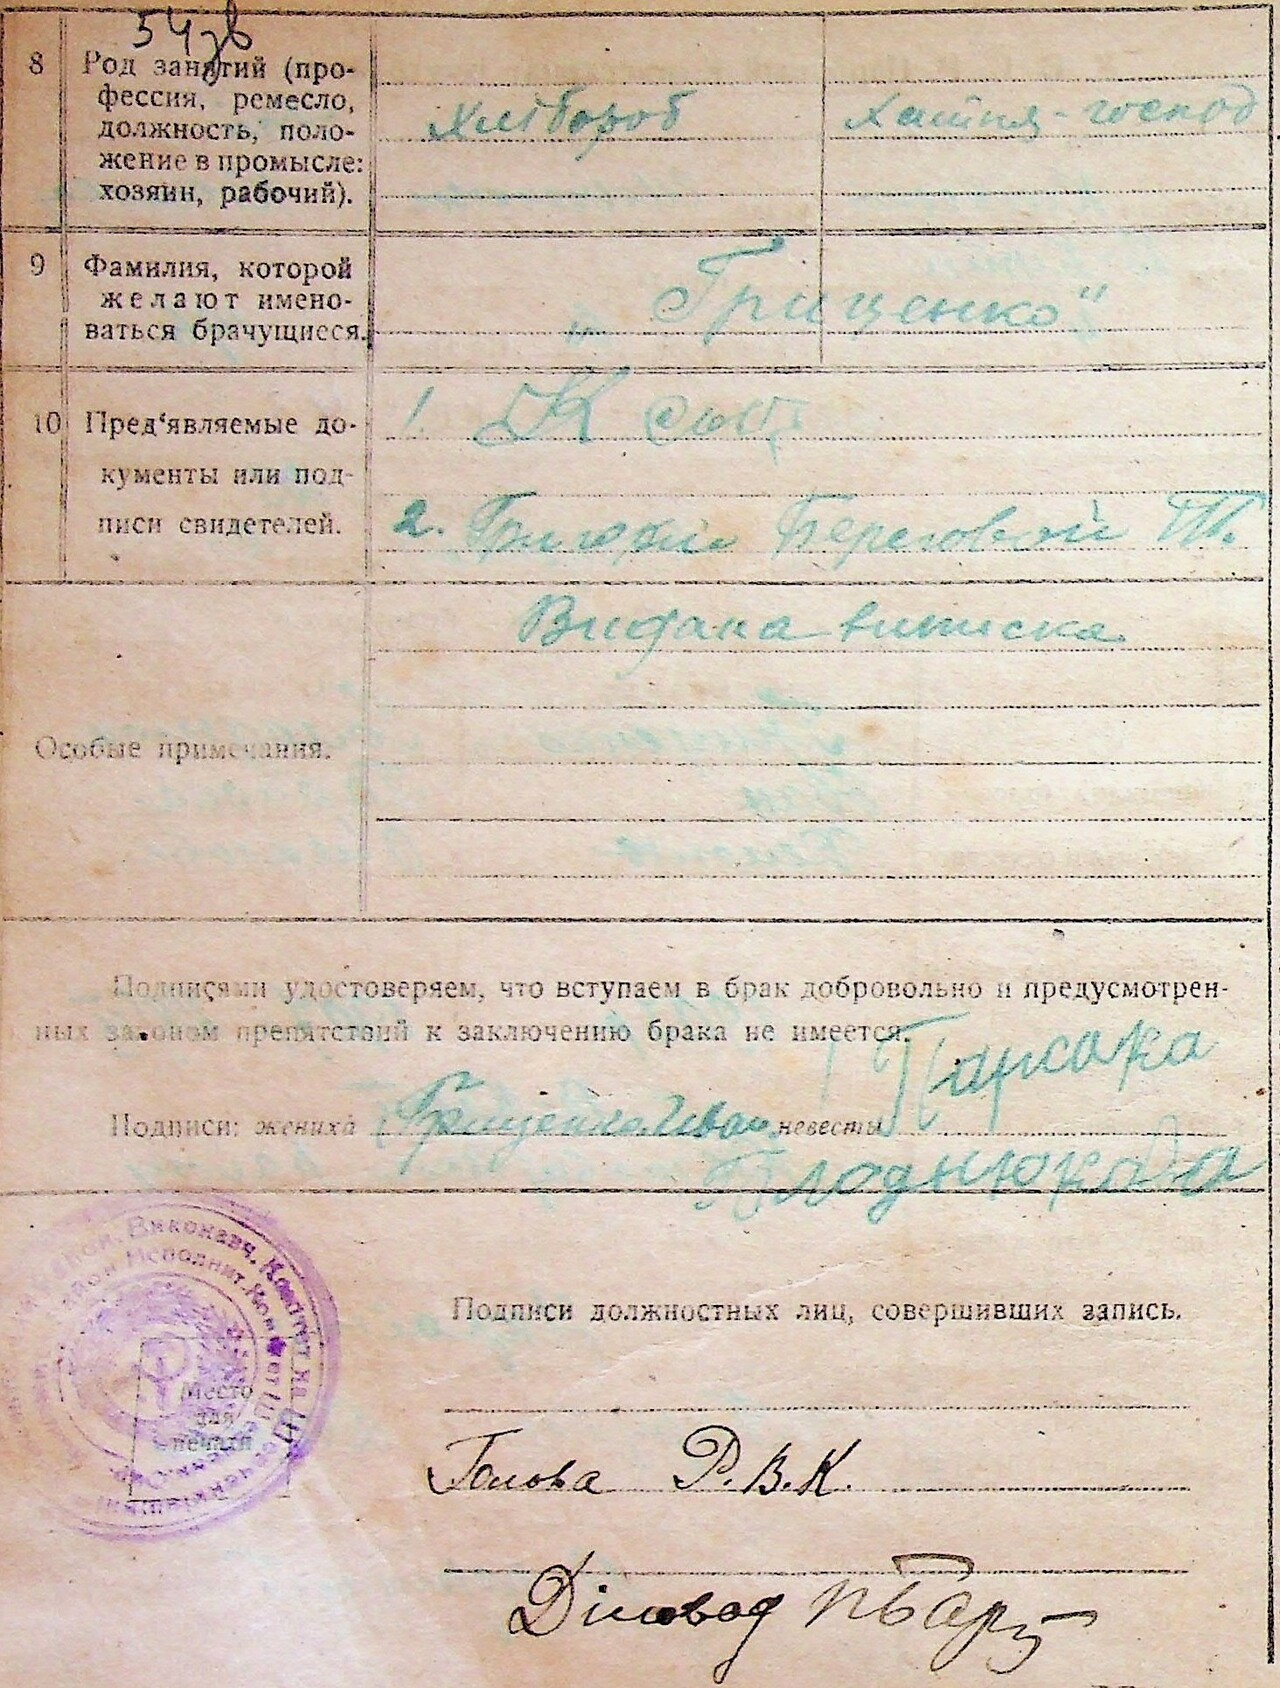 54 зв
8 Род занятий (про-
фессия, ремесло,
должность, поло-
жение в промысле:
хозяин, рабочий).
Хлібороб
хатня-господ
9 Фамилия, которой
желают имено-
ваться брачущиеся.
„Гриценко"
10 Пред‘являемые до-
кументы или под-
писи свидетелей.
1.
2. Григорий Береговой
Особые примечания.
Видана виписка
Подписями удостоверяем, что вступаем в брак добровольно и предусмотрен-
ных законом препятствий к заключению брака не имеется.
Подписи: жениха Гриценко Иван невесты Параска
Подписи должностных лиц, совершивших запись.
Виконавч. Комітет
Исполнит. Ком
Место
для
печати
Голова Р.В.К.
Діловод